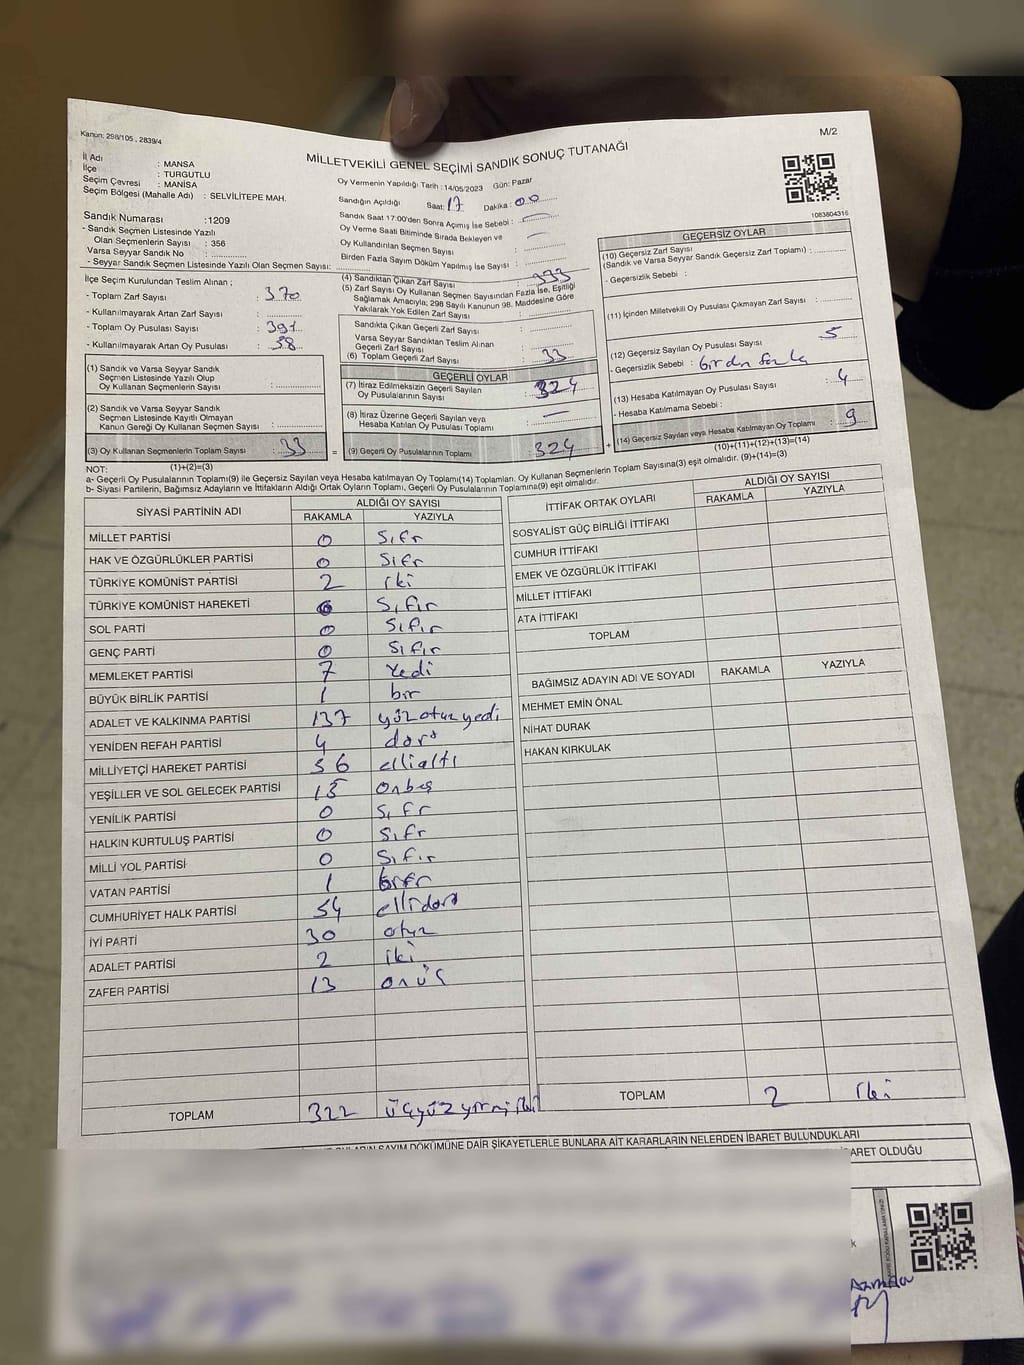 Kanun: 298/105 , 2839/4
M/2
MİLLETVEKİLİ GENEL SEÇİMİ SANDIK SONUÇ TUTANAĞI
İl Adı : MANİSA
İlçe : TURGUTLU
Seçim Çevresi : MANİSA
Seçim Bölgesi (Mahalle Adı) : SELVİLİTEPE MAH.
Sandık Numarası : 1209
- Sandık Seçmen Listesinde Yazılı
Olan Seçmenlerin Sayısı : 356
Varsa Seyyar Sandık No
- Seyyar Sandık Seçmen Listesinde Yazılı Olan Seçmen Sayısı:
Oy Vermenin Yapıldığı Tarih : 14/05/2023 Gün: Pazar
Sandığın Açıldığı Saat: 17 Dakika : 00
Sandık Saat 17:00'den Sonra Açımış İse Sebebi : —
Oy Verme Saati Bitiminde Sırada Bekleyen ve —
Oy Kullandırılan Seçmen Sayısı :
Birden Fazla Sayım Döküm Yapılmış İse Sayısı :
1083804316
İlçe Seçim Kurulundan Teslim Alınan ;
- Toplam Zarf Sayısı : 370
- Kullanılmayarak Artan Zarf Sayısı :
- Toplam Oy Pusulası Sayısı : 391
- Kullanılmayarak Artan Oy Pusulası : 58
(1) Sandık ve Varsa Seyyar Sandık
Seçmen Listesinde Yazılı Olup
Oy Kullanan Seçmenlerin Sayısı :
(2) Sandık ve Varsa Seyyar Sandık
Seçmen Listesinde Kayıtlı Olmayan
Kanun Gereği Oy Kullanan Seçmen Sayısı :
(3) Oy Kullanan Seçmenlerin Toplam Sayısı : 33 =
(1)+(2)=(3)
(4) Sandıktan Çıkan Zarf Sayısı : 333
(5) Zarf Sayısı Oy Kullanan Seçmen Sayısından Fazla İse, Eşitliği
Sağlamak Amacıyla; 298 Sayılı Kanunun 98. Maddesine Göre
Yakılarak Yok Edilen Zarf Sayısı :
Sandıkta Çıkan Geçerli Zarf Sayısı :
Varsa Seyyar Sandıktan Teslim Alınan
Geçerli Zarf Sayısı :
(6) Toplam Geçerli Zarf Sayısı : 33
GEÇERLİ OYLAR
(7) İtiraz Edilmeksizin Geçerli Sayılan
Oy Pusulalarının Sayısı : 324
(8) İtiraz Üzerine Geçerli Sayılan veya
Hesaba Katılan Oy Pusulası Toplamı : —
(9) Geçerli Oy Pusulalarının Toplamı 324 +
GEÇERSİZ OYLAR
(10) Geçersiz Zarf Sayısı
(Sandık ve Varsa Seyyar Sandık Geçersiz Zarf Toplamı) :
- Geçersizlik Sebebi :
(11) İçinden Milletvekili Oy Pusulası Çıkmayan Zarf Sayısı :
(12) Geçersiz Sayılan Oy Pusulası Sayısı : 5
- Geçersizlik Sebebi : birden fazla
(13) Hesaba Katılmayan Oy Pusulası Sayısı : 4
- Hesaba Katılmama Sebebi :
(14) Geçersiz Sayılan veya Hesaba Katılmayan Oy Toplamı : 9
(10)+(11)+(12)+(13)=(14)
NOT:
a- Geçerli Oy Pusulalarının Toplamı(9) ile Geçersiz Sayılan veya Hesaba Katılmayan Oy Toplamı(14) Toplamları, Oy Kullanan Seçmenlerin Toplam Sayısına(3) eşit olmalıdır. (9)+(14)=(3)
b- Siyasi Partilerin, Bağımsız Adayların ve İttifakların Aldığı Ortak Oyların Toplamı, Geçerli Oy Pusulalarının Toplamına(9) eşit olmalıdır.
SİYASİ PARTİNİN ADI ALDIĞI OY SAYISI
RAKAMLA YAZIYLA
MİLLET PARTİSİ 0 Sıfr
HAK VE ÖZGÜRLÜKLER PARTİSİ 0 Sıfr
TÜRKİYE KOMÜNİST PARTİSİ 2 iki
TÜRKİYE KOMÜNİST HAREKETİ 0 Sıfır
SOL PARTİ 0 Sıfır
GENÇ PARTİ 0 Sıfır
MEMLEKET PARTİSİ 7 Yedi
BÜYÜK BİRLİK PARTİSİ 1 bir
ADALET VE KALKINMA PARTİSİ 137 yüzotuzyedi
YENİDEN REFAH PARTİSİ 4 dört
MİLLİYETÇİ HAREKET PARTİSİ 56 ellialtı
YEŞİLLER VE SOL GELECEK PARTİSİ 15 onbeş
YENİLİK PARTİSİ 0 Sıfr
HALKIN KURTULUŞ PARTİSİ 0 Sıfr
MİLLİ YOL PARTİSİ 0 Sıfır
VATAN PARTİSİ 1
CUMHURİYET HALK PARTİSİ 54 ellidört
İYİ PARTİ 30 otuz
ADALET PARTİSİ 2 iki
ZAFER PARTİSİ 13 onüç
TOPLAM 322 üçyüzyirmiiki
İTTİFAK ORTAK OYLARI ALDIĞI OY SAYISI
RAKAMLA YAZIYLA
SOSYALİST GÜÇ BİRLİĞİ İTTİFAKI
CUMHUR İTTİFAKI
EMEK VE ÖZGÜRLÜK İTTİFAKI
MİLLET İTTİFAKI
ATA İTTİFAKI
TOPLAM
BAĞIMSIZ ADAYIN ADI VE SOYADI RAKAMLA YAZIYLA
MEHMET EMİN ÖNAL
NİHAT DURAK
HAKAN KIRKULAK
TOPLAM 2 iki
SAYIM DÖKÜMÜNE DAİR ŞİKAYETLERLE BUNLARA AİT KARARLARIN NELERDEN İBARET BULUNDUKLARI
OLDUĞU